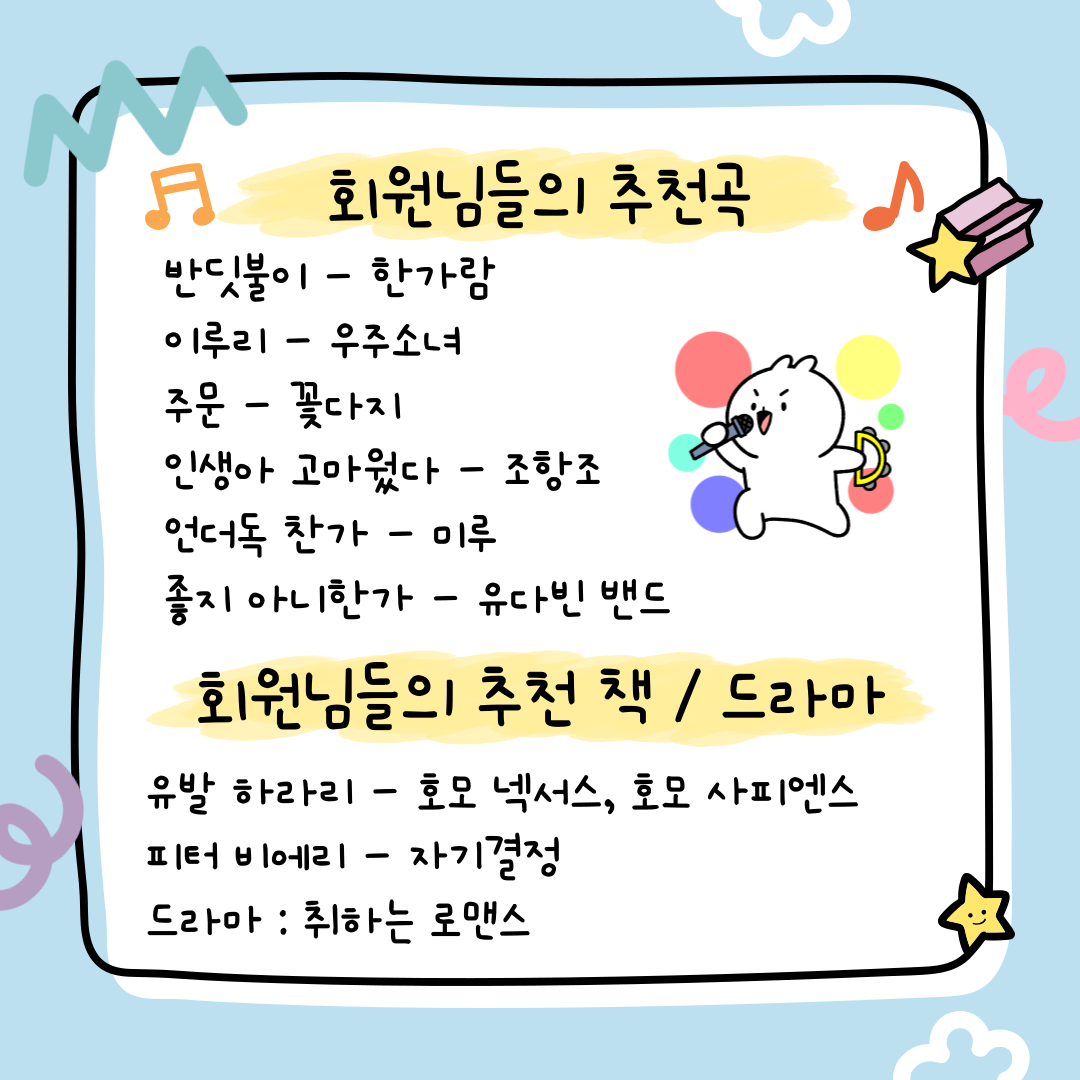 회원님들의 추천곡
반딧불이 - 한가람
이루리 - 우주소녀
주문 - 꽃다지
인생아 고마웠다 - 조항조
언더독 찬가 - 미루
좋지 아니한가 - 유다빈 밴드
회원님들의 추천 책 / 드라마
유발 하라리 - 호모 넥서스, 호모 사피엔스
피터 비에리 - 자기결정
드라마 : 취하는 로맨스